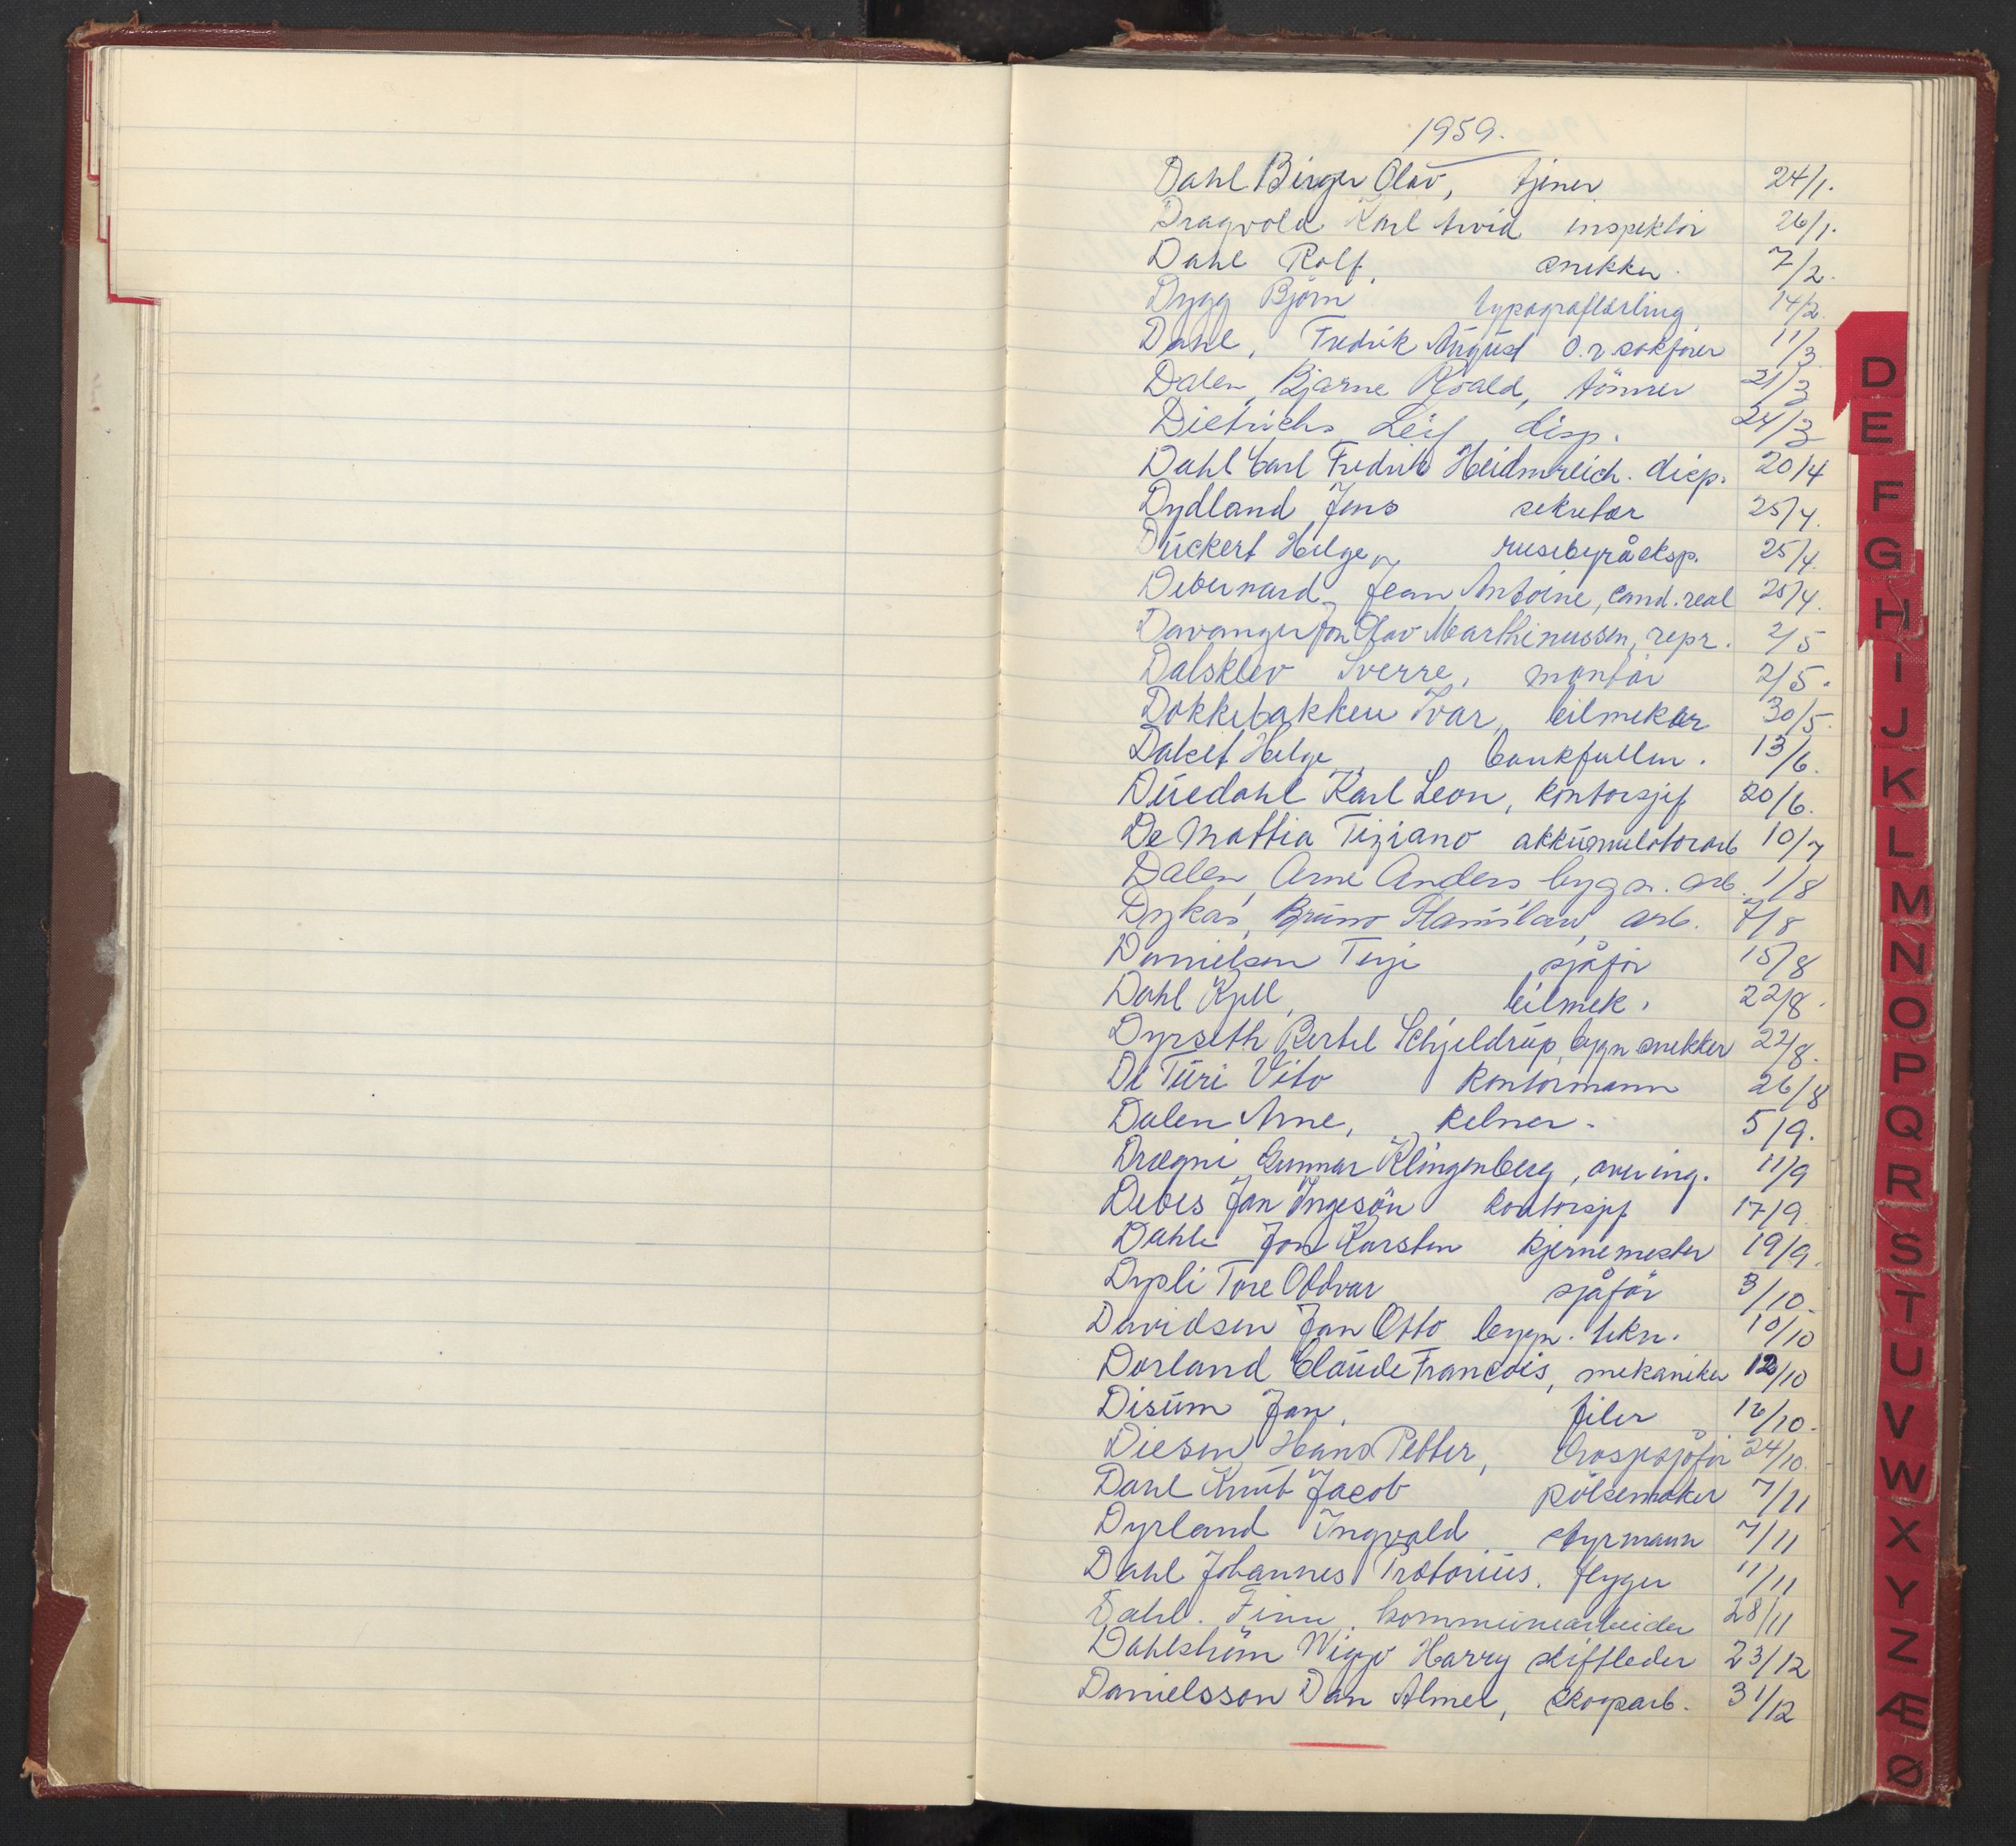 1959.
Dahl Birger Olav, tjener 24/1.
Dragvold Karl Arvid inspektör 26/1.
Dahl Rolf, snekker. 7/2.
Dygg Björn typograflærling 14/2.
Dahl, Fredrik August o.r.sakförer 11/3
Dalen, Bjarne Roald, tömrer 21/3
Dietrichs Leif disp. 24/3
Dahl Carl Fredrik Heidenreich. disp. 20/4
Dydland Jens sekretær 25/4.
Dückert Helge, reisebyråeksp. 25/4.
Debernard, Jean Antoine, cand. real 25/4.
Davanger Jon Olav Marthinussen, repr. 2/5
Dalsklev Sverre, montör 2/5.
Dokkebakken Ivar, bilmekar 30/5.
Helge, bankfullm. 13/6.
Duedahl Karl Leon, kontorsjef 20/6.
De Mattia Tiziano akkumulatorarb 10/7
Dalen, Arne Anders bygn. arb. 1/8
Dykas, Bruno Stanislaw, arb. 7/8
Danielsen Terje sjåför 15/8
Dahl Kjell, bilmek. 22/8.
Dyrseth Bertel Schjeldrup, bygn snekker 22/8.
De Turi Vito kontormann 26/8
Dalen Arne, kelner. 5/9.
Drægni Gunnar Klingenberg, overing. 11/9
Debes Jan Ingesön kontorsjef 17/9
Dahle Jon Karsten kjernemester 19/9.
Dypli Tore Oddvar sjåför 3/10.
Davidsen Jan Otto bygn. tekn. 10/10
Dorland Claude Francois, mekaniker 12/10
Disum Jan, filer 16/10.
Diesen Hans Petter, drosjesjåför 24/10.
Dahl Knut Jacob pölsemaker 7/11
Dyrland Ingvald styrmann 7/11
Dahl Johannes Prætorius, flyger 11/11
Dahl. Finn kommunearbeider 28/11
Dahlström Wiggo Harry skiftleder 23/12
Danielsson Dan Almer, skogarb. 31/12
D
E
F
G
H
I
J
K
L
M
N
O
P
Q
R
S
T
U
V
W
X
Y
Z
Æ
Ø